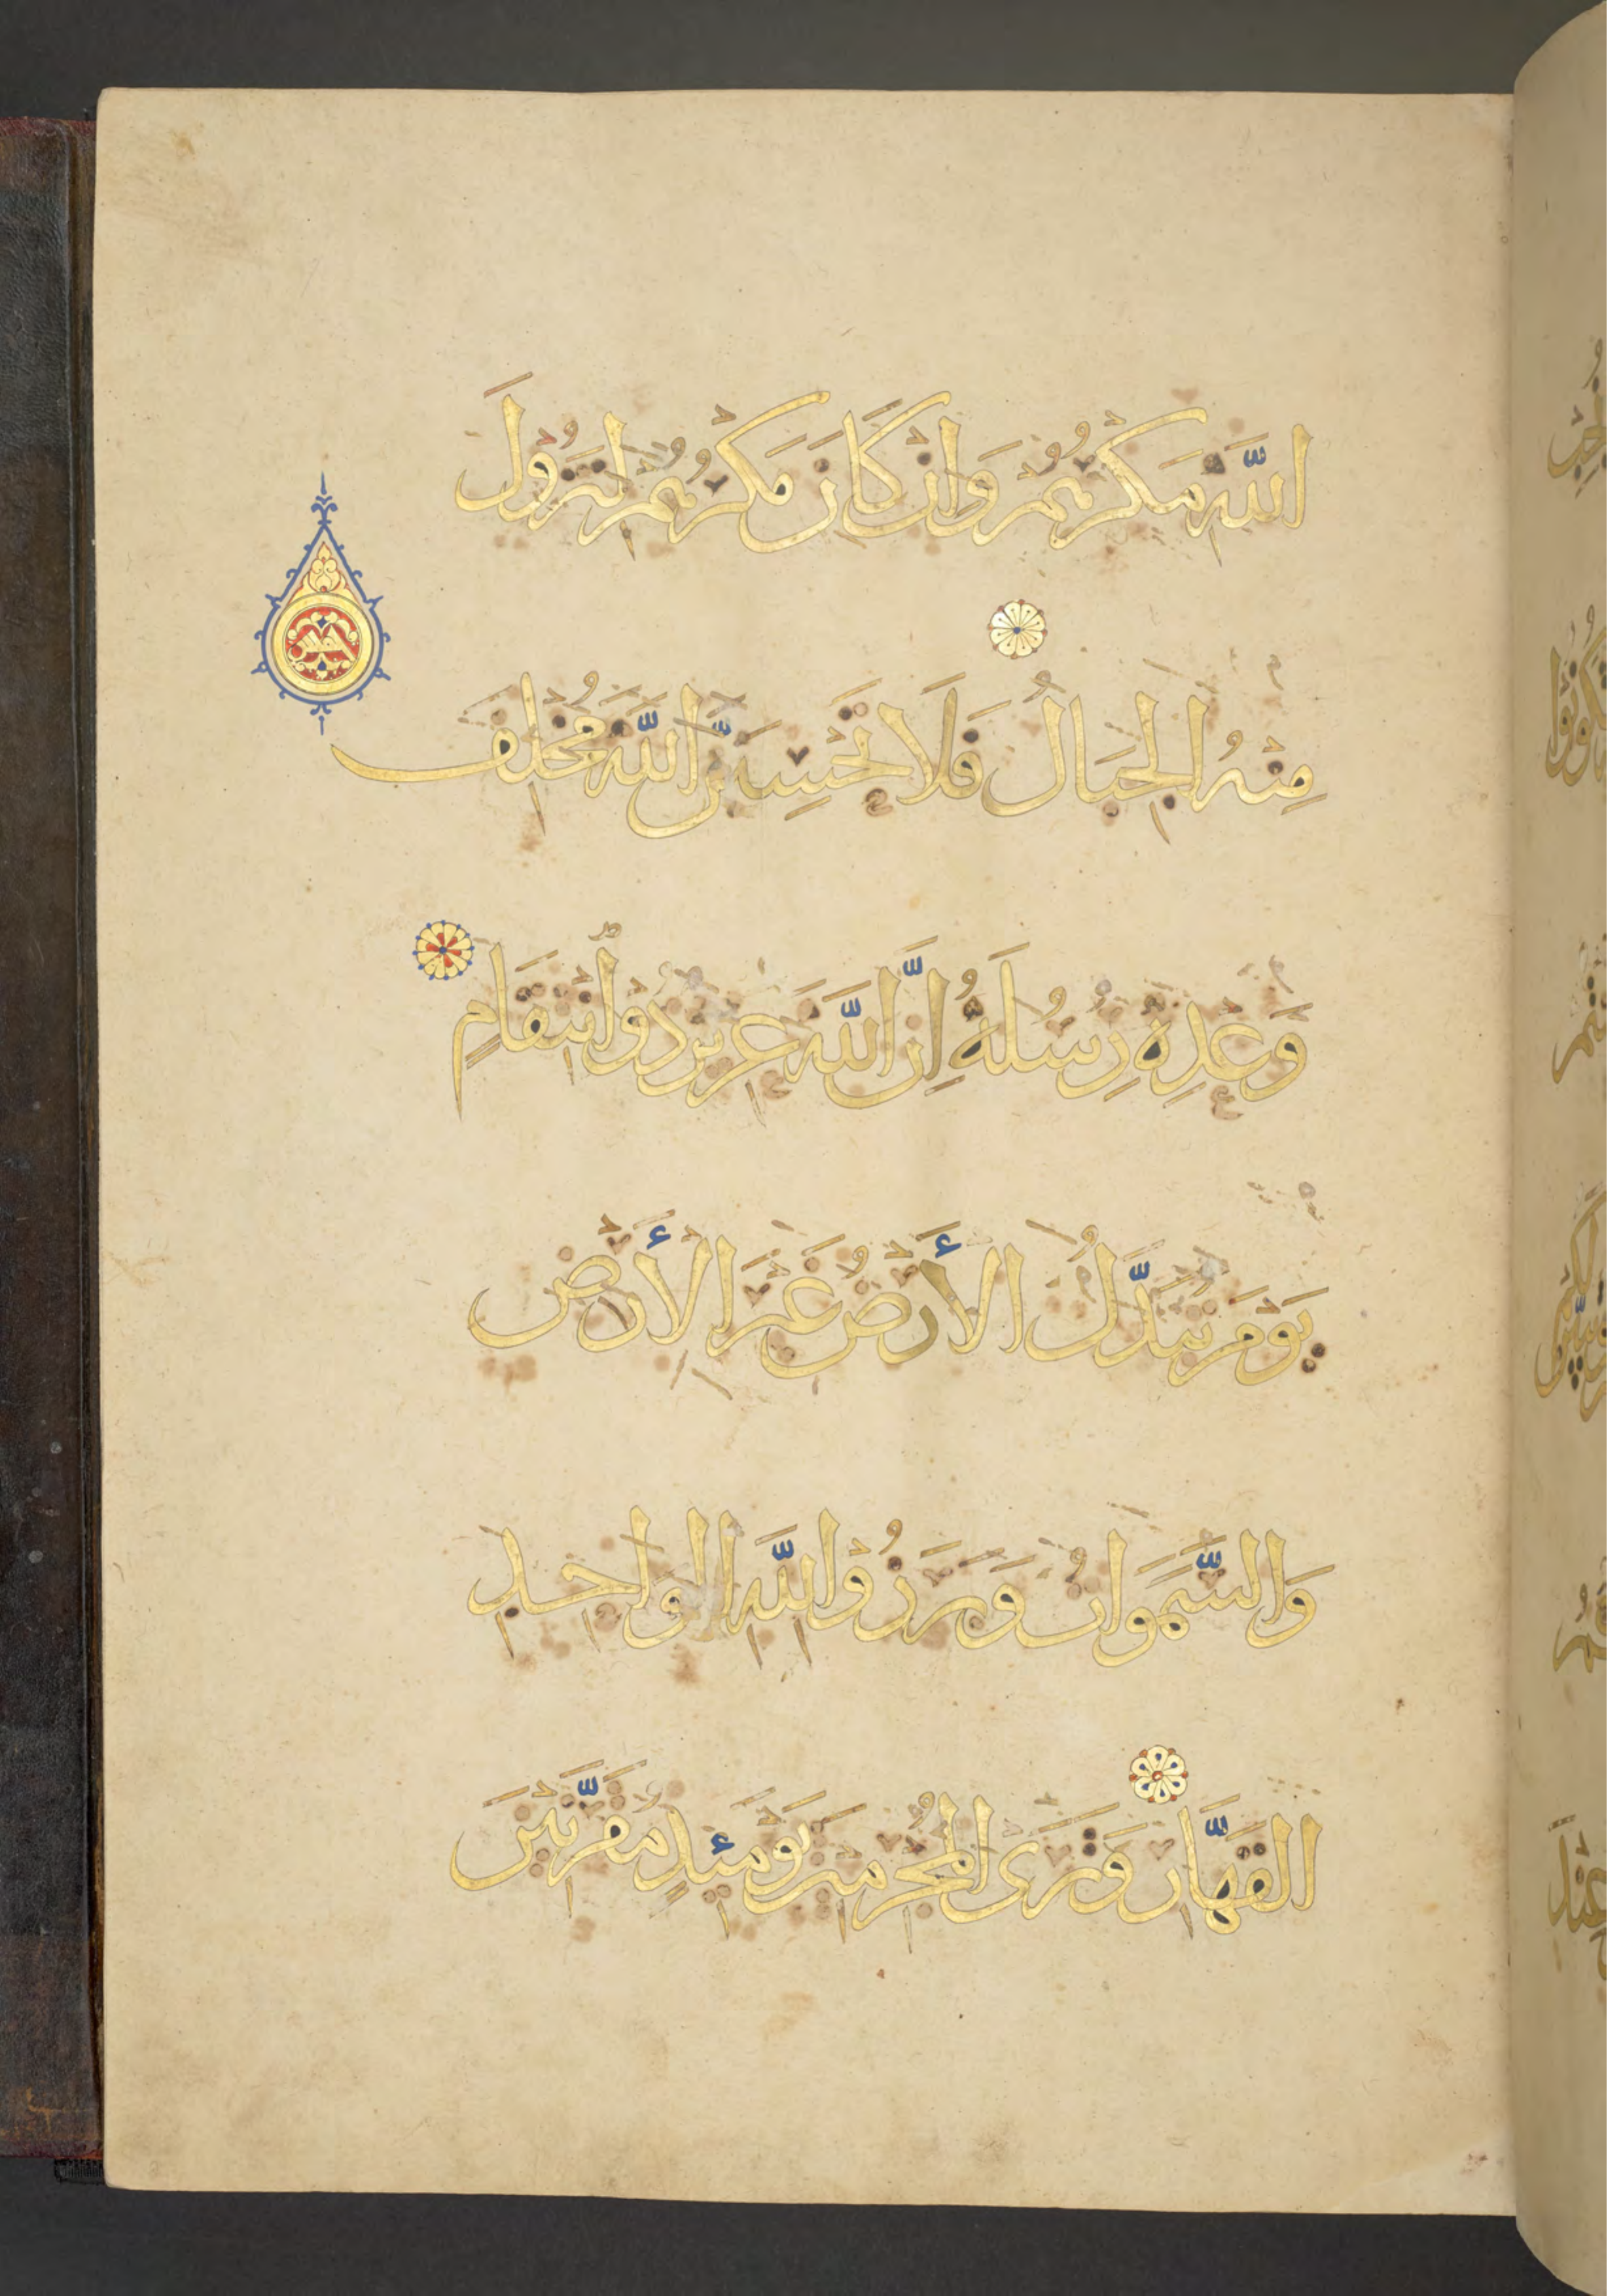 اللَّهِ مَكْرُهُمْ وَإِنْ كَانَ مَكْرُهُمْ لِتَزُولَ
مِنْهُ الْجِبَالُ فَلَا تَحْسِبَنَّ اللَّهَ مُخْلِفَ
وَعْدِهِ رُسُلَهُ إِنَّ اللَّهَ عَزِيزٌ ذُو انْتِقَامٍ
يَوْمَ تُبَدَّلُ الْأَرْضُ غَيْرَ الْأَرْضِ
وَالسَّمَوَاتُ وَبَرَزُوا لِلَّهِ الْوَاحِدِ
الْقَهَّارِ وَتَرَى الْمُجْرِمِينَ يَوْمَئِذٍ مُقَرَّنِينَ